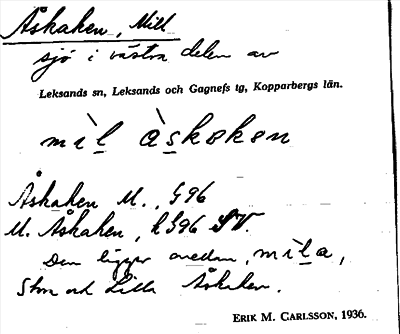 Åskaken, Mill
sjö i västra delen av
Leksands sn, Leksands och Gagnefs tg, Kopparbergs län.
mìl àskakan
Åskaken M., G96
M. Åskaken, k G96 SV.
Den ligger mellan, mila,
Stora och Lilla Åskaken.
ERIK M. CARLSSON, 1936.